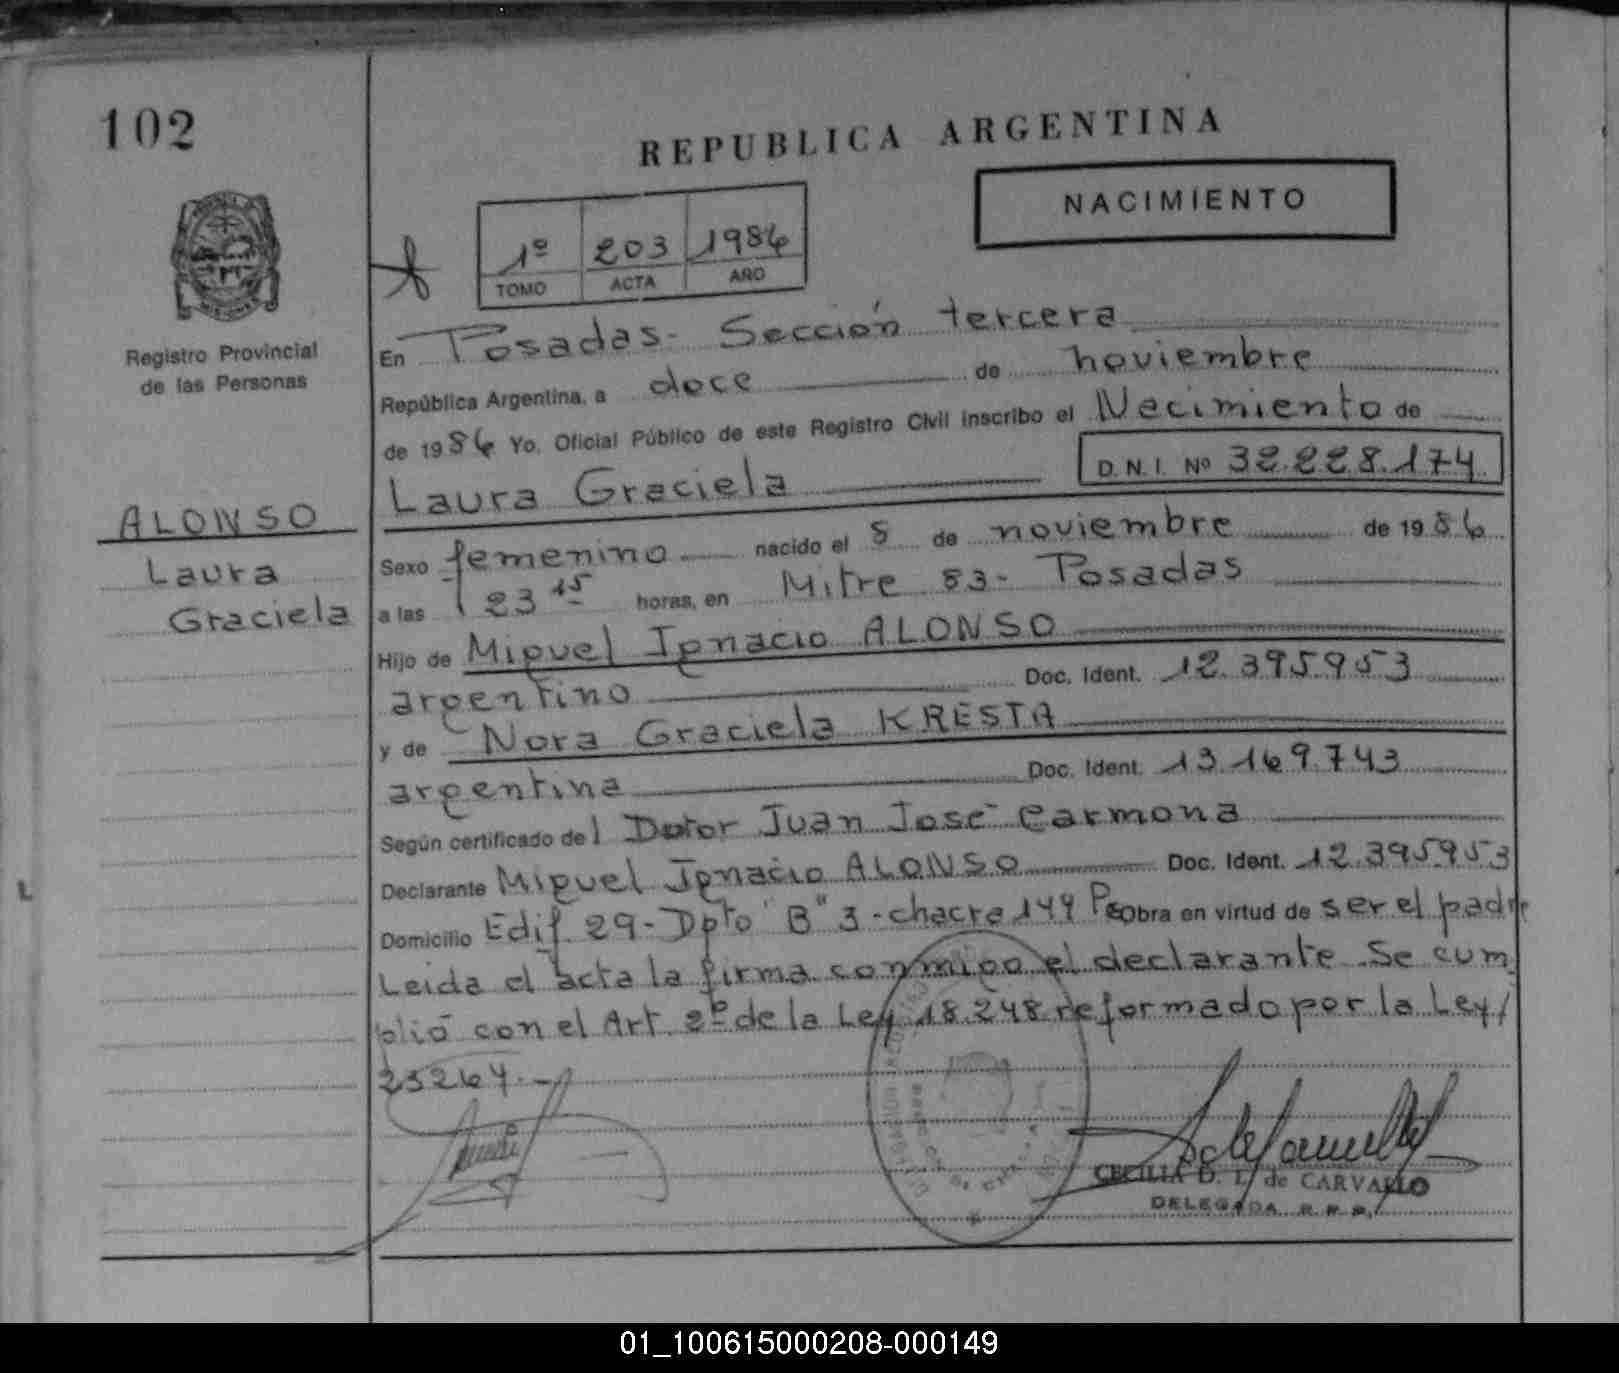 102
REPUBLICA ARGENTINA
NACIMIENTO
1º 203 1986
TOMO ACTA AÑO
Registro Provincial
de las Personas
ALONSO
Laura
Graciela
En Posadas- Sección tercera
República Argentina, a doce de noviembre
de 1986 Yo, Oficial Público de este Registro Civil inscribo el Nacimiento de
Laura Graciela D.N.I. Nº 32.228.174
Sexo femenino nacido el 8 de noviembre de 1986
a las 23 15 horas, en Mitre 83- Posadas
Hijo de Miguel Ignacio ALONSO
argentino Doc. Ident. 12.395953
y de Nora Graciela KRESTA
argentina Doc. Ident. 13.169.743
Según certificado del Dotor Juan José Carmona
Declarante Miguel Ignacio ALONSO Doc. Ident. 12.395953
Domicilio Edif. 29- Dpto "B" 3 -chacra 149 Obra en virtud de ser el padre
Leida el acta la firma conmigo el declarante. Se cum
plió con el Art. 2º de la Ley 18.248 reformado por la Ley/
23264.-
CECILIA D. L. de CARVALLO
DELEGADA R.P.P.
01_100615000208-000149